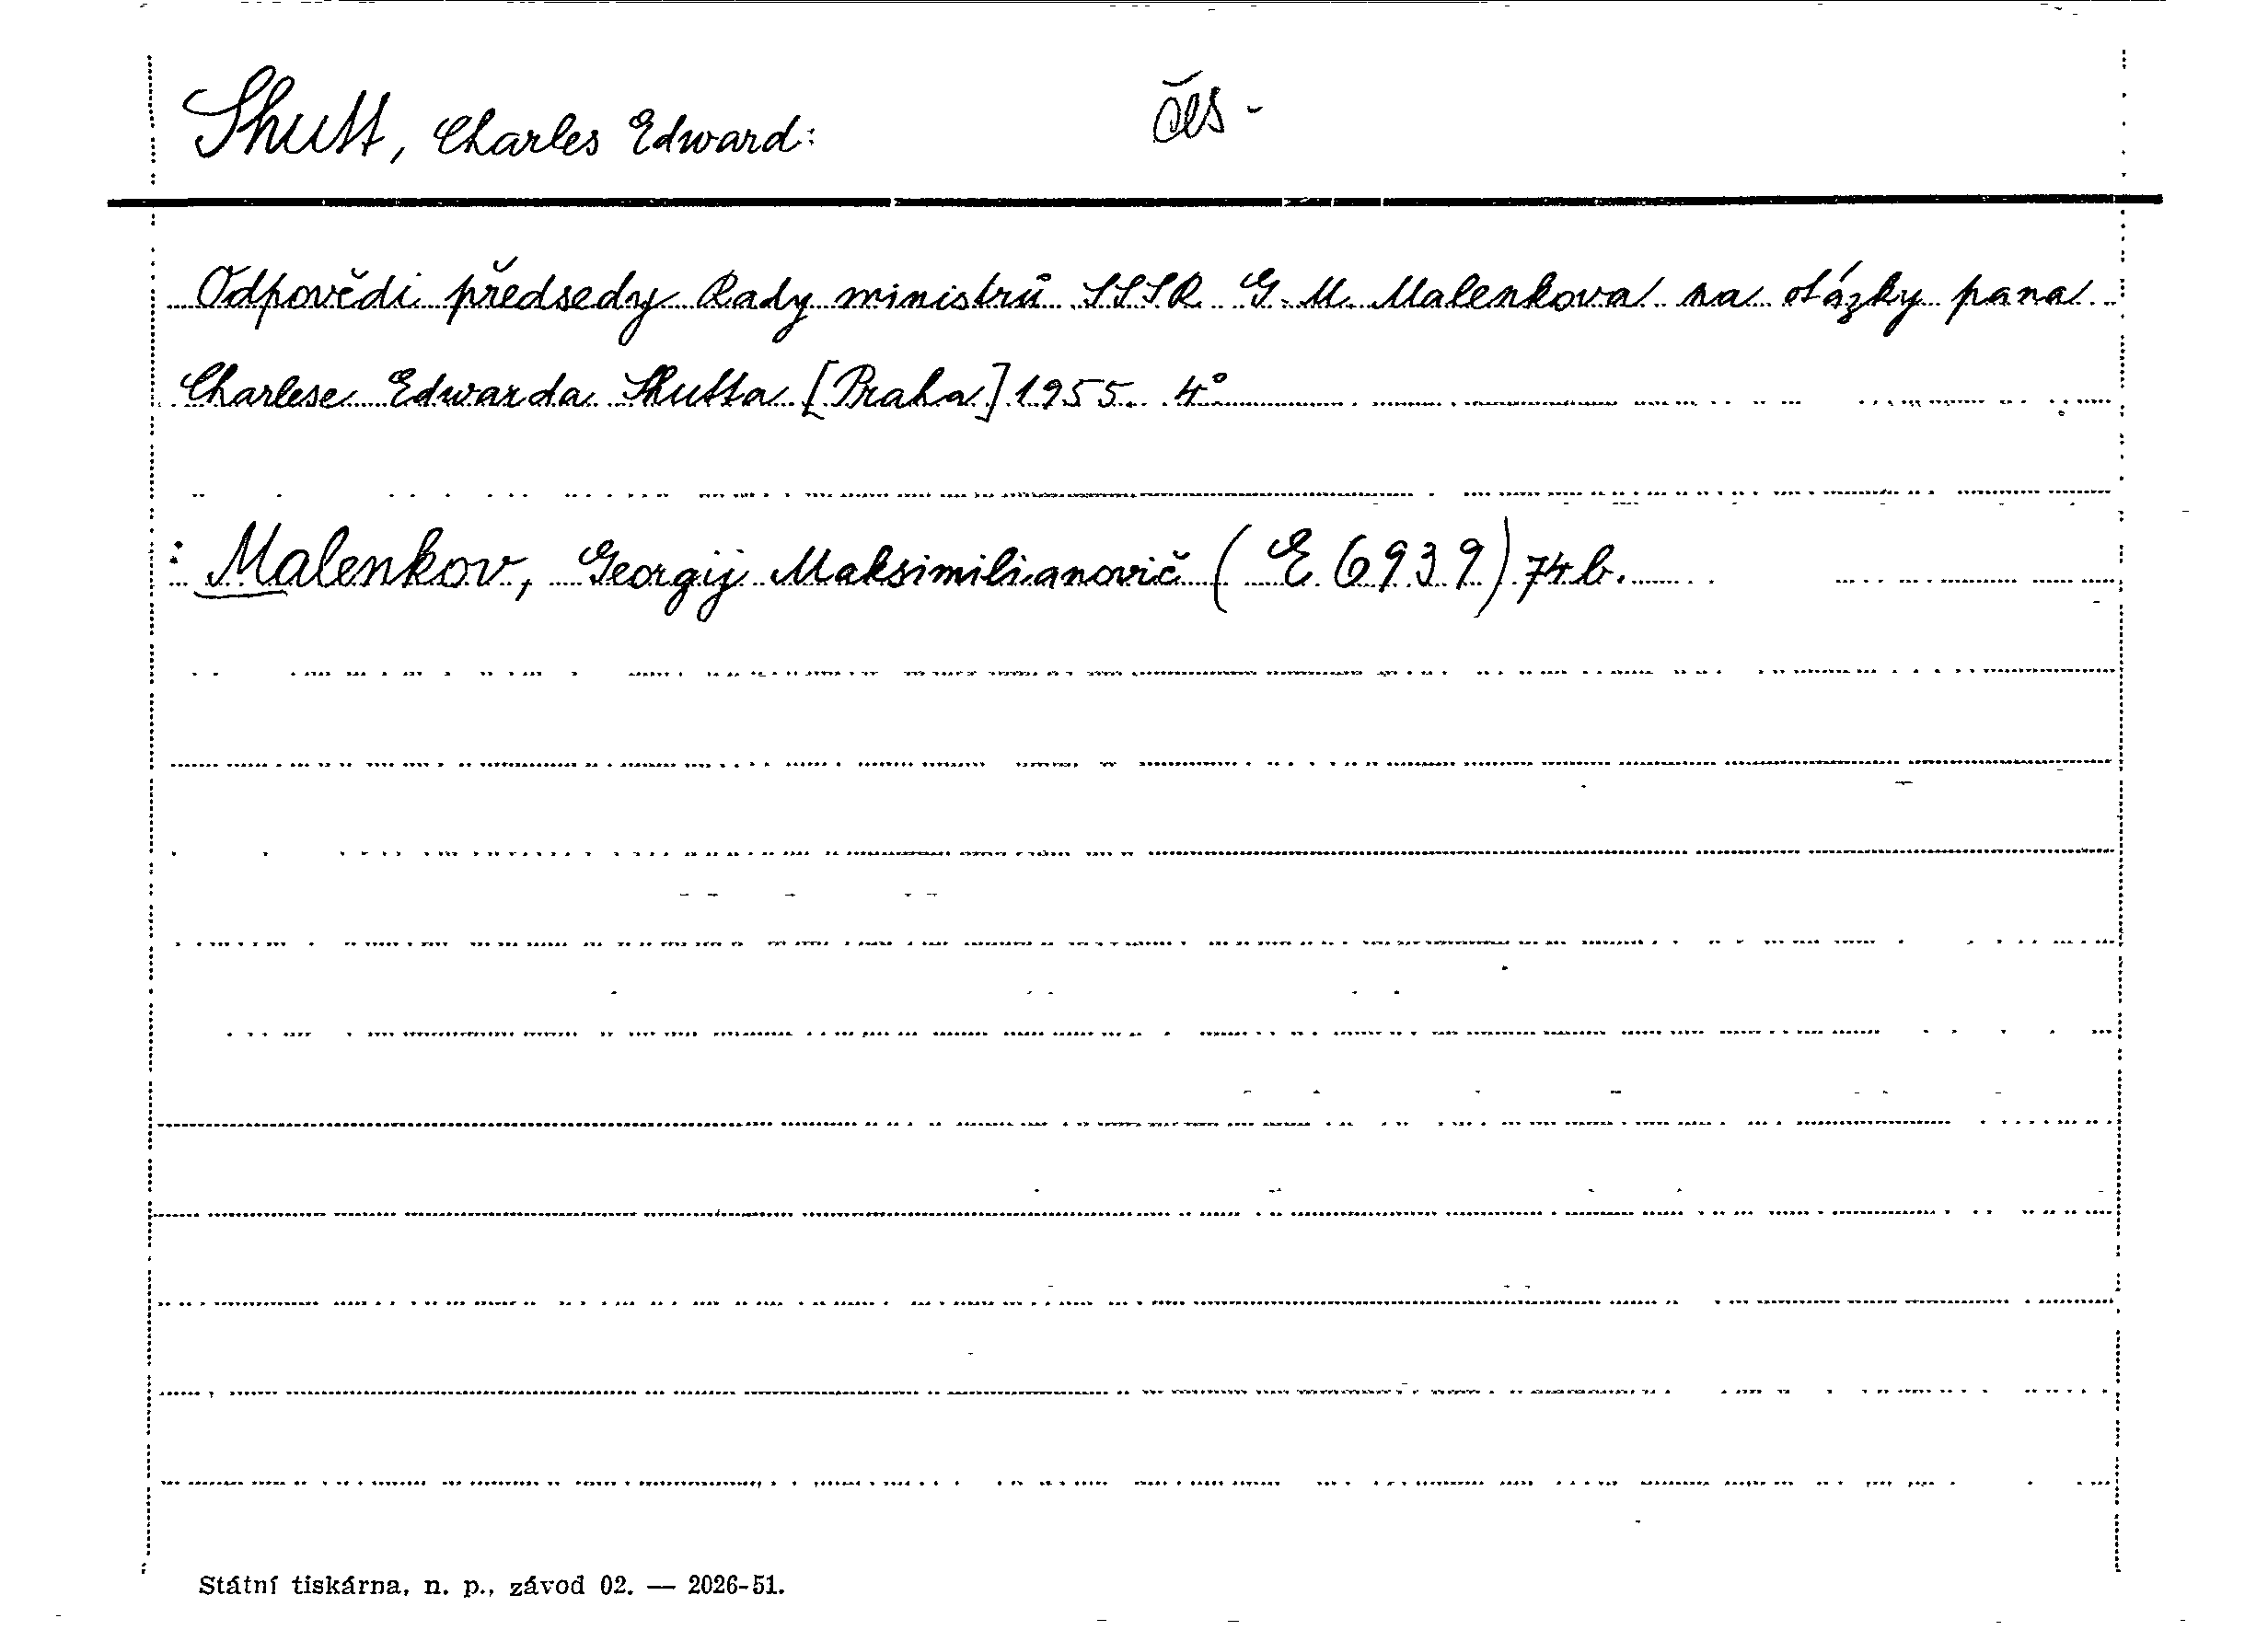 Shutt, Charles Edward:
čes -
Odpovědi předsedy Rady ministrů SSSR G. M. Malenkova na otázky pana
Charlese Edwarda Shutta [Praha] 1955. 4°
: Malenkov, Georgij Maksimilianovič (E 6939) 74b.
Státní tiskárna, n. p., závod 02. — 2026-51.